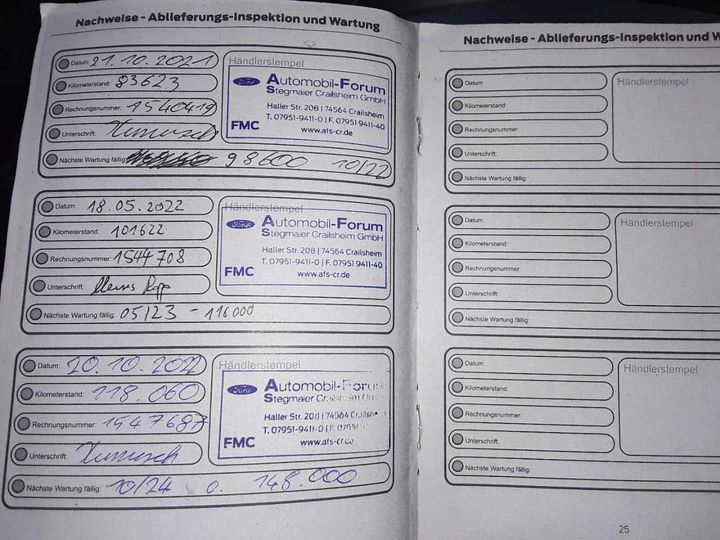 Nachweise - Ablieferungs-Inspektion und Wartung
Datum: 21.10.2021
Kilometerstand: 83623
Rechnungsnummer: 1540419
Unterschrift:
Nächste Wartung fällig: 98600 10/22
Händlerstempel
Ford Automobil-Forum
Stegmaier Crailsheim GmbH
Haller Str. 208 | 74564 Crailsheim
T. 07951-9411-0 | F. 07951 9411-40
FMC www.afs-cr.de
Datum: 18.05.2022
Kilometerstand: 101622
Rechnungsnummer: 1544708
Unterschrift:
Nächste Wartung fällig: 05/23 - 116000
Händlerstempel
Ford Automobil-Forum
Stegmaier Crailsheim GmbH
Haller Str. 208 | 74564 Crailsheim
T. 07951-9411-0 | F. 07951 9411-40
FMC www.afs-cr.de
Datum: 20.10.2022
Kilometerstand: 118.060
Rechnungsnummer: 1547687
Unterschrift:
Nächste Wartung fällig: 10/24 o. 148.000
Händlerstempel
Ford Automobil-Forum
Stegmaier Crailsheim
Haller Str. 208 | 74564
T. 07951-9411-0 | F.
FMC www.afs-cr.de
Nachweise - Ablieferungs-Inspektion und W
Datum:
Kilometerstand:
Rechnungsnummer:
Unterschrift:
Nächste Wartung fällig:
Händlerstempel
Datum:
Kilometerstand:
Rechnungsnummer:
Unterschrift:
Nächste Wartung fällig:
Händlerstempel
Datum:
Kilometerstand:
Rechnungsnummer:
Unterschrift:
Nächste Wartung fällig:
Händlerstempel
25